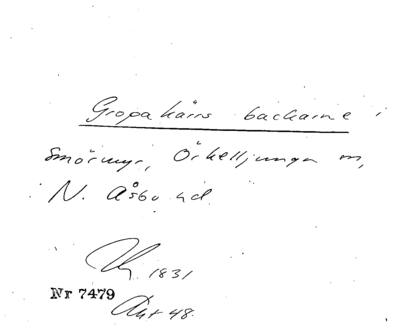 Gropakärrs backarne i
Smörmyr, Örkelljunga m,
N. Åsbo hd
1831
Nr 7479
Akt 48.